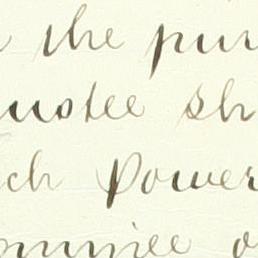 the pur
ustee sh
ch Power